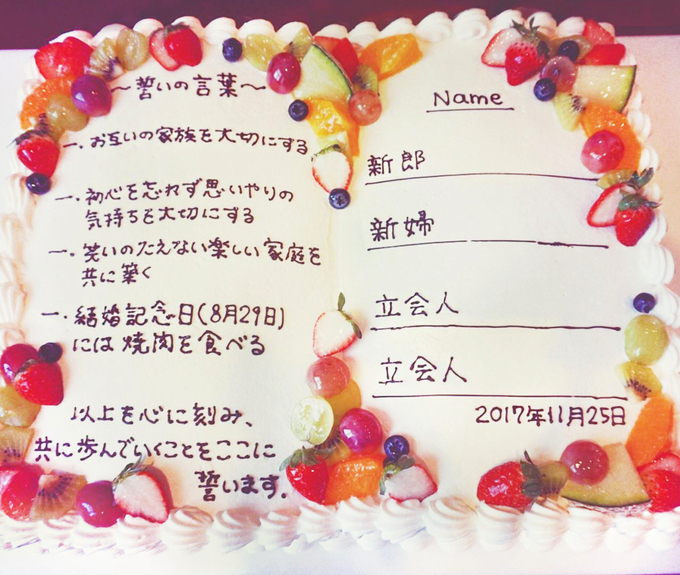 ～誓いの言葉～
一. お互いの家族を大切にする
一. 初心を忘れず思いやりの
気持ちを大切にする
一. 笑いのたえない楽しい家庭を
共に築く
一. 結婚記念日(8月29日)
には焼肉を食べる
以上を心に刻み、
共に歩んでいくことをここに
誓います。
Name
新郎
新婦
立会人
立会人
2017年11月25日